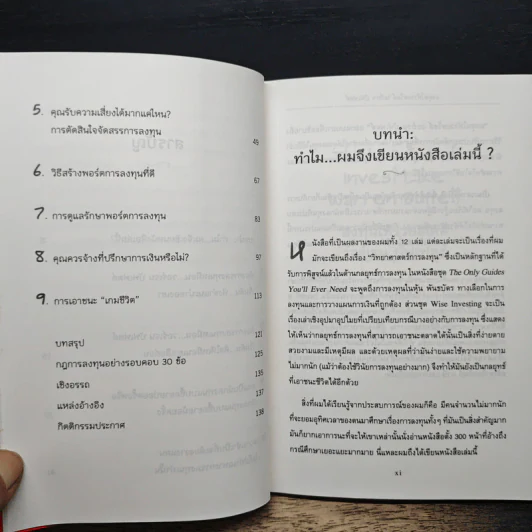 5. คุณรับความเสี่ยงได้มากแค่ไหน?
การตัดสินใจจัดสรรการลงทุน 45
6. วิธีสร้างพอร์ตการลงทุนที่ดี 57
7. การดูแลรักษาพอร์ตการลงทุน 83
8. คุณควรจ้างที่ปรึกษาการเงินหรือไม่? 97
9. การเอาชนะ "เกมชีวิต" 113
บทสรุป 121
กฎการลงทุนอย่างรอบคอบ 30 ข้อ 125
เชิงอรรถ 135
แหล่งอ้างอิง 137
กิตติกรรมประกาศ 138
บทนำ:
ทำไม...ผมจึงเขียนหนังสือเล่มนี้ ?
หนังสือที่เป็นผลงานของผมทั้ง 12 เล่ม แต่ละเล่มจะเป็นเรื่องที่ผม
มักจะเขียนถึงเรื่อง "วิทยาศาสตร์การลงทุน" ซึ่งเป็นหลักฐานที่ได้
รับการพิสูจน์แล้วในด้านกลยุทธ์การลงทุน ในหนังสือชุด The Only Guides
You'll Ever Need จะพูดถึงการลงทุนในหุ้น พันธบัตร ทางเลือกในการ
ลงทุนและการวางแผนการเงินที่ถูกต้อง ส่วนชุด Wise Investing จะเป็น
เรื่องเล่าเชิงอุปมาอุปไมยที่เปรียบเทียบกรณีบางอย่างกับการลงทุน ซึ่งแสดง
ให้เห็นว่ากลยุทธ์การลงทุนที่สามารถเอาชนะตลาดได้นั้นเป็นสิ่งที่ง่ายดาย
สวยงามและมีเหตุมีผล และด้วยเหตุผลที่ว่ามันง่ายและใช้ความพยายาม
ไม่มากนัก (แม้ว่าต้องใช้วินัยการลงทุนอย่างมาก) จึงทำให้มันยังเป็นกลยุทธ์
ที่เอาชนะชีวิตได้อีกด้วย
สิ่งที่ผมได้เรียนรู้จากประสบการณ์ของผมก็คือ มีคนจำนวนไม่มากนัก
ที่จะยอมอุทิศเวลาของตนมาศึกษาเรื่องการลงทุนทั้งๆ ที่มันเป็นสิ่งสำคัญมาก
มันก็ยากเอาการนะที่จะให้เขาเหล่านั้นนั่งอ่านหนังสือตั้ง 300 หน้าที่อ้างถึง
กรณีศึกษาเยอะแยะมากมาย นี่แหละผมถึงได้เขียนหนังสือเล่มนี้
xi